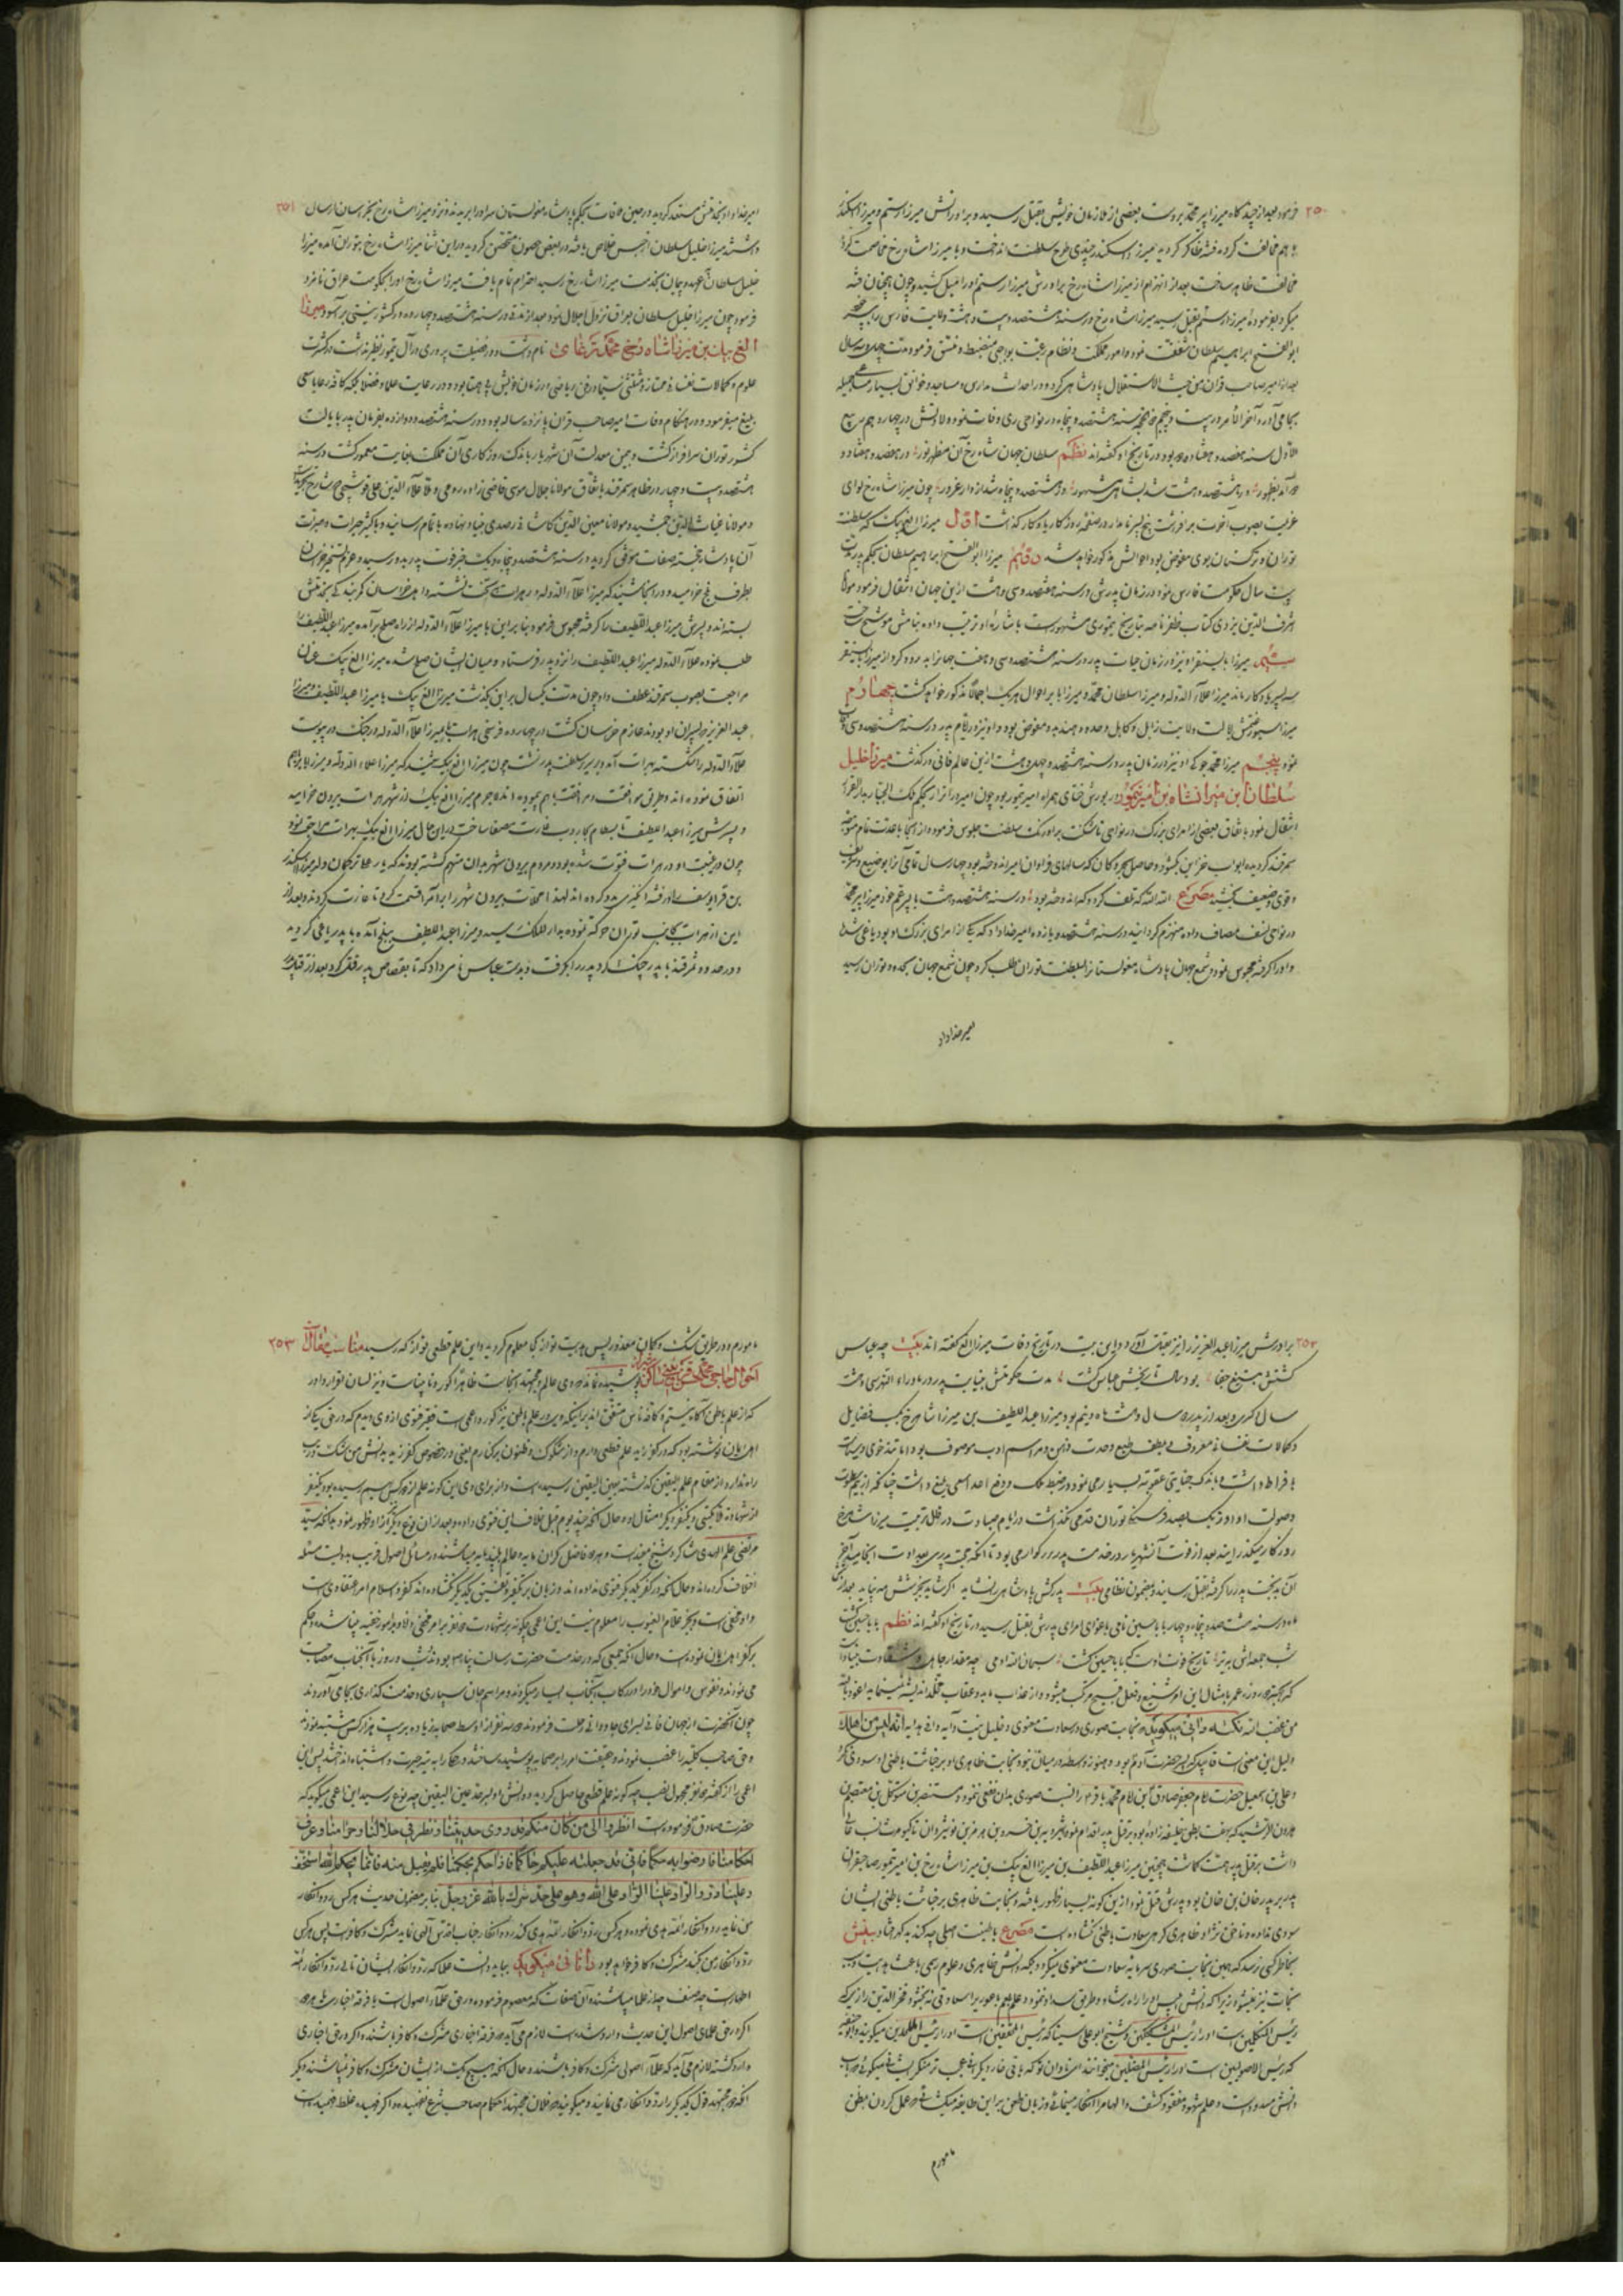 ۲۵۰
فرمود بعد از چندگاه میرزا پیر محمد بر دست بعضی از ملازمان خویش بقتل رسید و برادرانش میرزا رستم و میرزا اسکندر
با هم مخالفت کرده فتنه ظاهر گردید میرزا اسکندر چندی طرح سلطنت انداخت و با میرزا شاه رخ مخاصمت کرده
مخالفت ظاهر ساخت بعد از انهزام از میرزا شاه رخ برادرش میرزا رستم او را میل کشید و چون همچنان فتنه
میکرد بفرموده میرزا رستم بقتل رسید میرزا شاه رخ در سنه هشتصد و بیست و هشت ولایت فارس را به پسر خود
ابو الفتح ابراهیم سلطان شفقت نمود و امور مملکت و نظام رعیت بواجبی منضبط و منسق فرمود مدت چهل و سه سال
بعد از امیر صاحب قران من حیث الاستقلال پادشاهی کرد و در احداث مدارس و مساجد و خوانق بسیار مساعی جمیله
بجای آورد آخر الامر در بیست و پنجم ذیحجه سنه هشتصد و پنجاه در نواحی ری وفات نمود ولادتش در چهاردهم ربیع
الاول سنه هفتصد و هفتاد و نه بود در تاریخ او گفته اند نظم سلطان جهان شاه رخ آن مظهر نور در هفصد و هفتاد و
نه آمد بظهور در هشتصد و هشت شد بشاهی مشهور در هشتصد و پنجاه شد از دار غرور چون میرزا شاه رخ لوای
عزیمت بصوب آخرت برافراشت پنج پسر نامدار در صفحه روزگار یادگار گذاشت اول میرزا الغ بیک که سلطنت
توران و ترکستان بوی مفوض بود احوالش مذکور خواهد شد دوم میرزا ابو الفتح ابراهیم سلطان بحکم پدر مدت
بیست سال حکومت فارس نمود در زمان پدرش در سنه هشتصد و سی و هشت از این جهان انتقال فرمود مولانا
شرف الدین یزدی کتاب ظفر نامه بتاریخ تیموری مشهور است باشاره او ترتیب داده بنامش موشح ساخت
سیم میرزا بایسنقر او نیز در زمان حیات پدر در سنه هشتصد و سی و هفت جهانرا بدرود کرد از میرزا بایسنقر
سه پسر یادگار ماند میرزا علاء الدوله و میرزا سلطان محمد و میرزا بابر احوال هر یک اجمالا مذکور خواهد گشت چهارم
میرزا سیورغتمش ایالت ولایت زابل و کابل و حدود هند بدو مفوض بود و او نیز در ایام پدر در سنه هشتصد و سی وفات
نمود پنجم میرزا محمد جوکی او نیز در زمان پدر در سنه هشتصد و چهل و هشت ازین عالم فانی درگذشت میرزا خلیل
سلطان ابن میرانشاه بن امیر تیمور در یورش ختای همراه امیر تیمور بود چون امیر در اترار بحکم ملک الجبار بدار القرار
انتقال نمود باتفاق بعضی از امرای بزرگ در نواحی تاشکنت بر اورنک سلطنت جلوس فرمود و از آنجا باعدت تمام متوجه
سمرقند گردیده ابواب خزاین بگشود و حاصل بحر و کان که سالهای فراوان امیر اندوخته بود چهار سال تمامی آنرا بوضیع و شریف
و قوی و ضعیف بخشید مصرع الله الله که تلف کرد و که اندوخته بود در سنه هشتصد و هشت با پسر عم خود میرزا پیر محمد
در نواحی نسف مصاف داده منهزم گردانید در سنه هشتصد و یازده امیر خداداد که یکی از امرای بزرگ او بود یاغی شد
و او را گرفته محبوس نمود و شمع جهان پادشاه مغولستان را بسلطنت توران طلب کرد چون شمع جهان بحدود توران رسید
امیر خداداد
۲۵۱
امیر خداداد بخدمتش مستعد گردید در حین ملاقات بحکم پادشاه مغولستان سر او را بریدند و نزد میرزا شاه رخ بخراسان ارسال
داشتند میرزا خلیل سلطان از حبس خلاص یافته در بعض حصون متحصن گردید در این اثنا میرزا شاه رخ بتوران آمده میرزا
خلیل سلطان بعهد و پیمان بخدمت میرزا شاه رخ رسید احترام تمام یافت میرزا شاه رخ او را بحکومت عراق نامزد
فرمود چون میرزا خلیل سلطان بعراق نزول اجلال نمود بعد از مدتی در سنه هشتصد و چهارده در کشور نیستی بر آسود میرزا
الغ بیک بن میرزا شاه رخ محمد ترغای نام داشت و در فضیلت پروری در آل تیمور نظیر نداشت در کثرت
علوم و کمالات نفسانی ممتاز و مستثنی سیما در فن ریاضی در زمان خویش بی همتا بود و در رعایت علما و فضلا بلکه کافه رعایا سعی
بلیغ میفرمود و در هنگام وفات امیر صاحب قران یازده ساله بود و در سنه هشتصد و دوازده بفرمان پدر بایالت
کشور توران سرافراز گشت و بیمن معدلت آن شهریار باندک روزگاری آن مملکت بغایت معمور گشت در سنه
هشتصد و بیست و چهار در ظاهر سمرقند باتفاق مولانا جلال موسی قاضی زاده رومی و ملا علاء الدین علی قوشچی شارح تجرید
و مولانا غیاث الدین جمشید و مولانا معین الدین کاشانی رصدی بنیاد نهاده باتمام رسانید و باکثر خیرات و مبرات
آن پادشاه خجسته صفات موفق گردید در سنه هشتصد و پنجاه و یک خبر فوت پدر بدو رسید و عزم تسخیر خراسان
بطرف بلخ خرامید و در آنجا شنید که میرزا علاء الدوله در هرات بتخت نشسته و اهل خراسان کمر بندگی بخدمتش
بسته اند و پسرش میرزا عبد اللطیف را گرفته محبوس فرمود بنابر این با میرزا علاء الدوله از راه صلح برآمده میرزا عبد اللطیف را
طلب نموده علاء الدوله میرزا عبد اللطیف را نزد پدر فرستاد و میان ایشان صلح شده میرزا الغ بیک عنان
مراجعت بصوب سمرقند عطف داد چون مدت یکسال بر این بگذشت میرزا الغ بیک با میرزا عبد اللطیف و میرزا
عبد العزیز که پسران او بودند عازم خراسان گشت در چهارده فرسخی هرات با میرزا علاء الدوله در جنگ در پیوست
علاء الدوله را شکسته بهرات آمد و بر سریر سلطنت پدر نشست چون میرزا الغ بیک شنید که میرزا علاء الدوله و میرزا بابر باهم
اتفاق نموده اند و طریق موافقت و مرافقت باهم پیموده اند لاجرم میرزا الغ بیک از شهر هرات بیرون خرامید
و پسرش میرزا عبد اللطیف تا بسطام بجاروب غارت مصفا ساخت در این حال میرزا الغ بیک بهرات مراجعت نمود
چون در غیبت او در هرات فتوت شده بود و مردم بیرون شهر بدان متهم گشته بودند که یار علی ترکمان ولد میرزا اسکندر
بن قرا یوسف را در فتنه انگیزی مدد کرده اند لهذا محلات بیرون شهر را برامرا قسمت کرد تا غارت کردند و بعد از
این از هرات بجانب توران حرکت نموده بدار الملک رسید و میرزا عبد اللطیف ببلخ آمده با پدر یاغی گردید
و در حدود سمرقند با پدر جنگ کرد پدر را بگرفت و بدست عباس نامی داد که تا بقصاص پدر بقتل آورد بعد از قتل پدر
۲۵۲
برادرش میرزا عبد العزیز را نیز بقتل آورد و این بیت در تاریخ وفات میرزا الغ گفته اند بیت چه عباس
کشتش بتیغ جفا بود سال تاریخش عباس کشت مدت حکومتش بنیابت پدر در ماوراء النهر سی و هشت
سال اکثری و بعد از پدر دو سال و هشت ماه و نیم بود میرزا عبد اللطیف بن میرزا شاهرخ بکسب فضایل
و کمالات نفسانی معروف و بلطف طبع وحدت ذهن و مراسم ادب موصوف بود اما تندخوی و سیاست
بافراط داشت و باندک جنایتی عقوبت بسیار می نمود و در ضبط ملک و دفع اعدا سعی بلیغ داشت چنانکه از بیم سطوت
وصولت او دزد یکصد فرسنگ توران قدمی نمیگذاشت در ایام صبا در ظل تربیت میرزا شاهرخ
روزگار میگذرانید بعد از فوت آن شهریار در خدمت پدر بزرگوار می بود تا آنکه محبت پدری بعداوت انجامید آخر
آن بدبخت پدر را گرفته بقتل رسانید و مضمون نظامی بیت پدر کش پادشاهی را نشاید اگر شاید بجز شش مه نپاید بعد از شش
ماه در سنه هشتصد و پنجاه و چهار بابا حسین نامی باغوای امرای پدرش بقتل رسید در تاریخ او گفته اند نظم بابا حسین کشت
شب جمعه اش به تیر تاریخ فوت اوست که بابا حسین کشت سبحان الله آدمی چه مقدار جاهل و شقاوت بنیاد است
که بجهة دو روزه عمر بامثال این امر شنیع و فعل قبیح مرتکب میشود و از عذاب مآبد و عقاب مخلد اندیشه نمینماید نعوذ بالله
من غضب الله نکته دانی میگوید که نجابت صوری و سعادت معنوی و خلیل نیست و آیه وافی هدایه انه لیس من اهلک
دلیل این معنی است قابیل که پسر حضرت آدم بود و هنوز واسطه در میان نبود نجابت ظاهری او بر خباثت باطنی او سودی نکرد
و علی بن اسمعیل حضرت امام جعفر صادق ابن امام محمد باقر را نسب صوری بدان نفعی ننمود و مستنصر بن متوکل بن معتصم بن
هرون الرشید که بهفت بطن خلیفه زاده بود بر قتل پدر اقدام نمود شیرویه بن خسرو بن هرمز بن نوشیروان تا کیومرث نسب عالی
داشت بر قتل پدر همت گماشت همچنین میرزا عبد اللطیف بن میرزا الغ بیک بن میرزا شاه رخ بن امیر تیمور صاحبقران
پدر بر پدر خان بن خان بود پدرش قتل نمود از این گونه بسیار ظهور یافته و نجابت ظاهری بر خباثت باطنی ایشان
سودی نداده و ناخن نژاد ظاهری گره سعادت باطنی نگشاده است مصرع با طینت اصلی چه کند بد گهر افتاد بینش
بخاطر کسی نرسد که همین نجابت صوری سرمایه سعادت معنوی نمیگردد بلکه دانش ظاهری و علوم رسمی باعث هدایت و
نجات نیز نمیشود زیرا که دانش ابلیس او را براه رشاد و طریق سداد ننمود و علم بلعم باعور بر اسعاد وقی نبخشود فخر الدین رازی که
رئیس المتکلمین است او را رئیس المشککین و شیخ ابو علی سینا که رئیس المتقین است او را رئیس الملحدین میگویند و ابو حنیفه
که رئیس الاصولیین است او را رئیس المضلین میخوانند
دانش مسدود است و علم شهود مفقود کشف و الهام را انکار مینمائی و زبان طعن بر این طایفه میگشائی در عمل کردن بظن
ما مورم
۲۵۳
مامورم و در طریق شک و گمان معذور پس هدایت تو از کجا معلوم گردید و این علم قطعی تو از که رسید مناسب مقال
احوال حاجی محمد حسن شیخ ساکن شیراز پوشیده نماند که وی عالم و مجتهد آنجاست ظاهرا کور و نابیناست و نیز لسان او را در اور
که از علم باطن آگاه نیستم و کافه ناس متفق اند بر اینکه وی در علم باطن نیز کور و اعمی است فقیر فتوی از وی دیدم که در حق یکی از
اهل ایمان نوشته بود که در کفر زید علم قطعی دارم و از شکوک و ظنون بر کنارم یعنی در خصوص کفر زید بدانش من شک و ریب
راه ندارد از مقام علم الیقین گذشته بعین الیقین رسیده است و از برای وی این گونه علم از دو کس بهم رسیده بود یکی نفر
از شهادت قاکنی و یکنفر دیگر امثال او و حال آنکه چند یوم قبل خلاف این فتوی داده و بعد از آن نوع دیگر از او ظهور نمود چنانکه سید
مرتضی علم الهدی شاگرد شیخ مفید است و هر دو فاضل گران مایه و عالم بلند پایه میباشند در مسائل اصول قریب بدویست مسئله
اختلاف کرده اند و حال آنکه در کفر یکدیگر فتوی نداده اند و زبان بر تکفیر و تفسیق یکدیگر نگشاده اند کفر و اسلام امر اعتقادی است
و امر مخفی است و بجز علام الغیوب را معلوم نیست این اعمی چگونه بر شهادت دو نفر بر امر مخفی دانا و بر امور خفیه بینا شده حکم
بر کفر اهل ایمان نموده است و حال آنکه جمعی که در خدمت حضرت رسالت پناه بودند شب و روز با آنجناب مصاحبت
می نمودند و نفوس و اموال خود را در رکاب آنجناب ایثار میکردند و مراسم جان سپاری و خدمت گذاری بجای آوردند
چون آنحضرت از جهان فانی بسرای جاودانی رحلت فرمودند
و حق صاحب کلید را غصب نمودند و حقیقت امر را بر صحابه پوشیده ساختند و همگی را به تیه حیرت و اشتباه انداختند پس این
اعمی را از گفته دو نفر مجهول النسب چه گونه علم قطعی حاصل گردید و دانش او بسر حد عین الیقین چه نوع رسید این اعمی میگوید که
حضرت صادق فرموده است انظروا الی من کان منکم قد روی حدیثنا و نظر فی حلالنا و حرامنا و عرف
احکامنا فارضوا به حکما فانی قد جعلته علیکم حاکما فاذا حکم بحکمنا فلم یقبل منه فانما بحکم الله استخف
و علینا رد و الراد علینا الراد علی الله و هو علی حد الشرک بالله عز و جل بنابر مضمون حدیث هر کس رد و انکار
من نماید رد و انکار ائمه هدی نموده و هر کس رد و انکار ائمه هدی کند رد و انکار جناب اقدس الهی نماید مشرک و کافر است پس هر کس
رد و انکار من کند مشرک و کافر خواهد بود دانائی میگوید بباید دانست علما که رد و انکار ایشان تالی رد و انکار ائمه
اطهار است چه صنف و چه از علما میباشند آن صفات که معصوم فرموده در حق علماء اصول است یا فرقه اخباری یا هر دو
اگر در حق علمای اصول این حدیث وارد شده است لازم می آید که فرقه اخباری مشرک و کافر باشند و اگر در حق اخباری
وارد گشته لازم می آید که علماء اصولی مشرک و کافر باشند و حال آنکه هیچ یک از ایشان مشرک و کافر نمیباشند دیگر
آنکه دو مجتهد قول یکدیگر را رد و انکار می نمایند و میگویند که فلان مجتهد احکام صاحب شرع نفهمیده و اگر فهمیده غلط فهمیده است